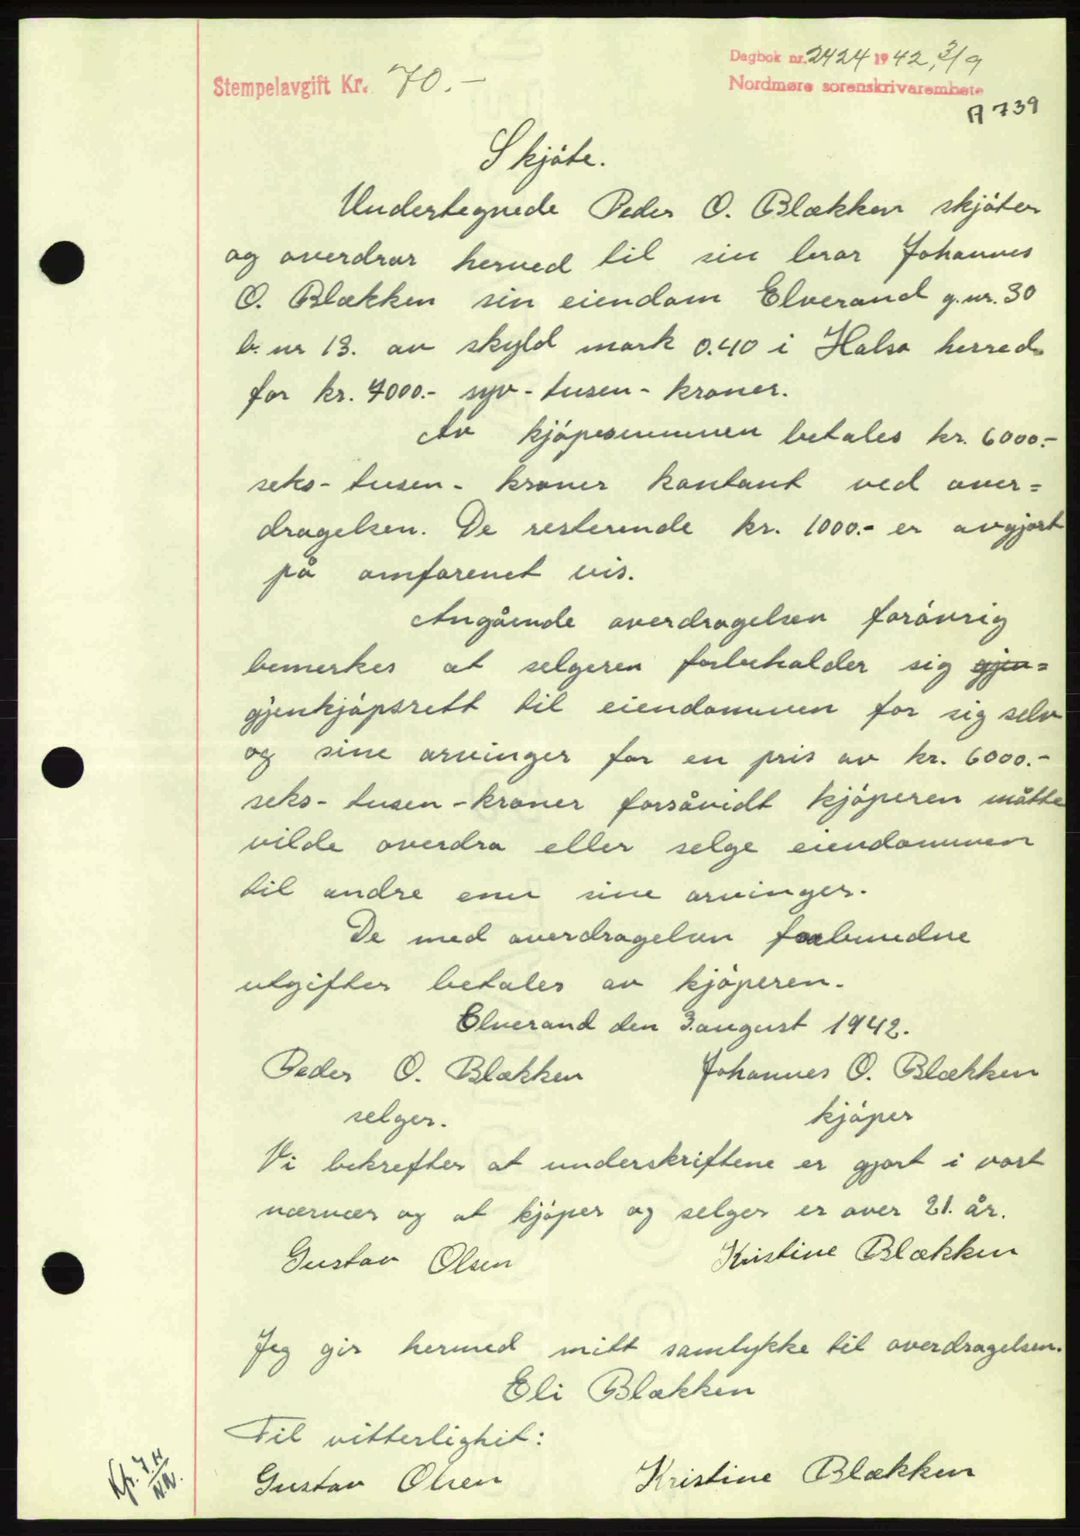 Stempelavgift Kr. 70.-
Dagbok nr. 2424 1942, 3/9
Nordmøre sorenskrivarembete
A 739
Skjøte.
Undertegnede Peder O. Blækken skjøter
og overdrar herved til sin bror Johannes
O. Blækken sin eiendom Elverand g.nr. 30
b.nr 13. av skyld mark 0.40 i Halsa herred
for kr. 7000.- syv-tusen-kroner.
Av kjøpesummen betales kr. 6000.-
seks-tusen-kroner kontant ved over=
dragelsen. De resterende kr. 1000.- er avgjort
på omforenet vis.
Angående overdragelsen forøvrig
bemerkes at selgeren forbeholder sig gjen=
gjenkjøpsrett til eiendommen for sig selv
og sine arvinger for en pris av kr. 6000.-
seks-tusen-kroner forsåvidt kjøperen måtte
vilde overdra eller selge eiendommen
til andre enn sine arvinger.
De med overdragelsen forbundne
utgifter betales av kjøperen.
Elverand den 3 august 1942.
Peder O. Blækken Johannes O. Blækken
selger. kjøper
Vi bekrefter at underskriftene er gjort i vort
nærvær og at kjøper og selger er over 21. år.
Gustav Olsen Kristine Blækken
Jeg gir hermed mitt samtykke til overdragelsen.
Eli Blækken
Til vitterlighet:
Gustav Olsen Kristine Blækken